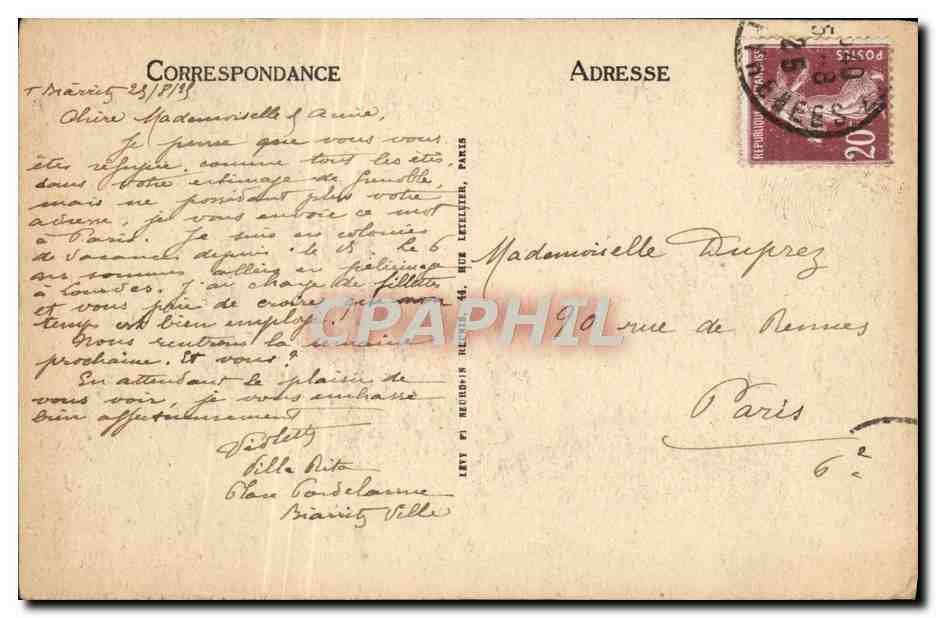 CORRESPONDANCE
Biarritz 23/8/25
Chère Mademoiselle & Amie,
Je pense que vous vous
êtes réfugiée comme tous les étés
dans votre ermitage de Grenoble,
mais ne possédant plus votre
adresse, je vous envoie ce mot
à Paris. Je suis en colonies
de vacances depuis le 15 Le 6
nous sommes allées en pélerinage
à Lourdes. J'ai charge de fillettes
et vous prie de croire que mon
temps est bien employé!
Nous rentrons la semaine
prochaine. Et vous?
En attendant le plaisir de
vous voir, je vous embrasse
bien affectueusement
Violette
Villa Rita
Place
Biarritz Ville
LEVY ET NEURDEIN REUNIS, 44, RUE LETELLIER, PARIS
ADRESSE
REPUBLIQUE FRANÇAISE
POSTES
20
25
PYRENEES
Mademoiselle Duprez
90 rue de Rennes
Paris
6e
CPAPHIL